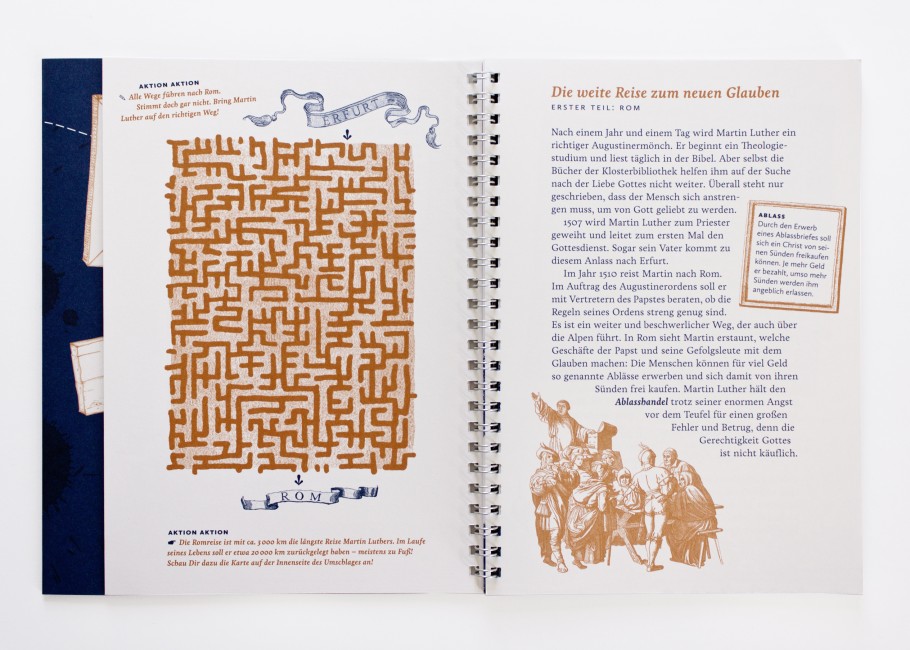 AKTION AKTION
Alle Wege führen nach Rom.
Stimmt doch gar nicht. Bring Martin
Luther auf den richtigen Weg!
ERFURT
ROM
AKTION AKTION
Die Romreise ist mit ca. 3 000 km die längste Reise Martin Luthers. Im Laufe
seines Lebens soll er etwa 20 000 km zurückgelegt haben – meistens zu Fuß!
Schau Dir dazu die Karte auf der Innenseite des Umschlages an!
Die weite Reise zum neuen Glauben
ERSTER TEIL: ROM
Nach einem Jahr und einem Tag wird Martin Luther ein
richtiger Augustinermönch. Er beginnt ein Theologie-
studium und liest täglich in der Bibel. Aber selbst die
Bücher der Klosterbibliothek helfen ihm auf der Suche
nach der Liebe Gottes nicht weiter. Überall steht nur
geschrieben, dass der Mensch sich anstren-
gen muss, um von Gott geliebt zu werden.
1507 wird Martin Luther zum Priester
geweiht und leitet zum ersten Mal den
Gottesdienst. Sogar sein Vater kommt zu
diesem Anlass nach Erfurt.
Im Jahr 1510 reist Martin nach Rom.
Im Auftrag des Augustinerordens soll er
mit Vertretern des Papstes beraten, ob die
Regeln seines Ordens streng genug sind.
Es ist ein weiter und beschwerlicher Weg, der auch über
die Alpen führt. In Rom sieht Martin erstaunt, welche
Geschäfte der Papst und seine Gefolgsleute mit dem
Glauben machen: Die Menschen können für viel Geld
so genannte Ablässe erwerben und sich damit von ihren
Sünden frei kaufen. Martin Luther hält den
Ablasshandel trotz seiner enormen Angst
vor dem Teufel für einen großen
Fehler und Betrug, denn die
Gerechtigkeit Gottes
ist nicht käuflich.
ABLASS
Durch den Erwerb
eines Ablassbriefes soll
sich ein Christ von sei-
nen Sünden freikaufen
können. Je mehr Geld
er bezahlt, umso mehr
Sünden werden ihm
angeblich erlassen.